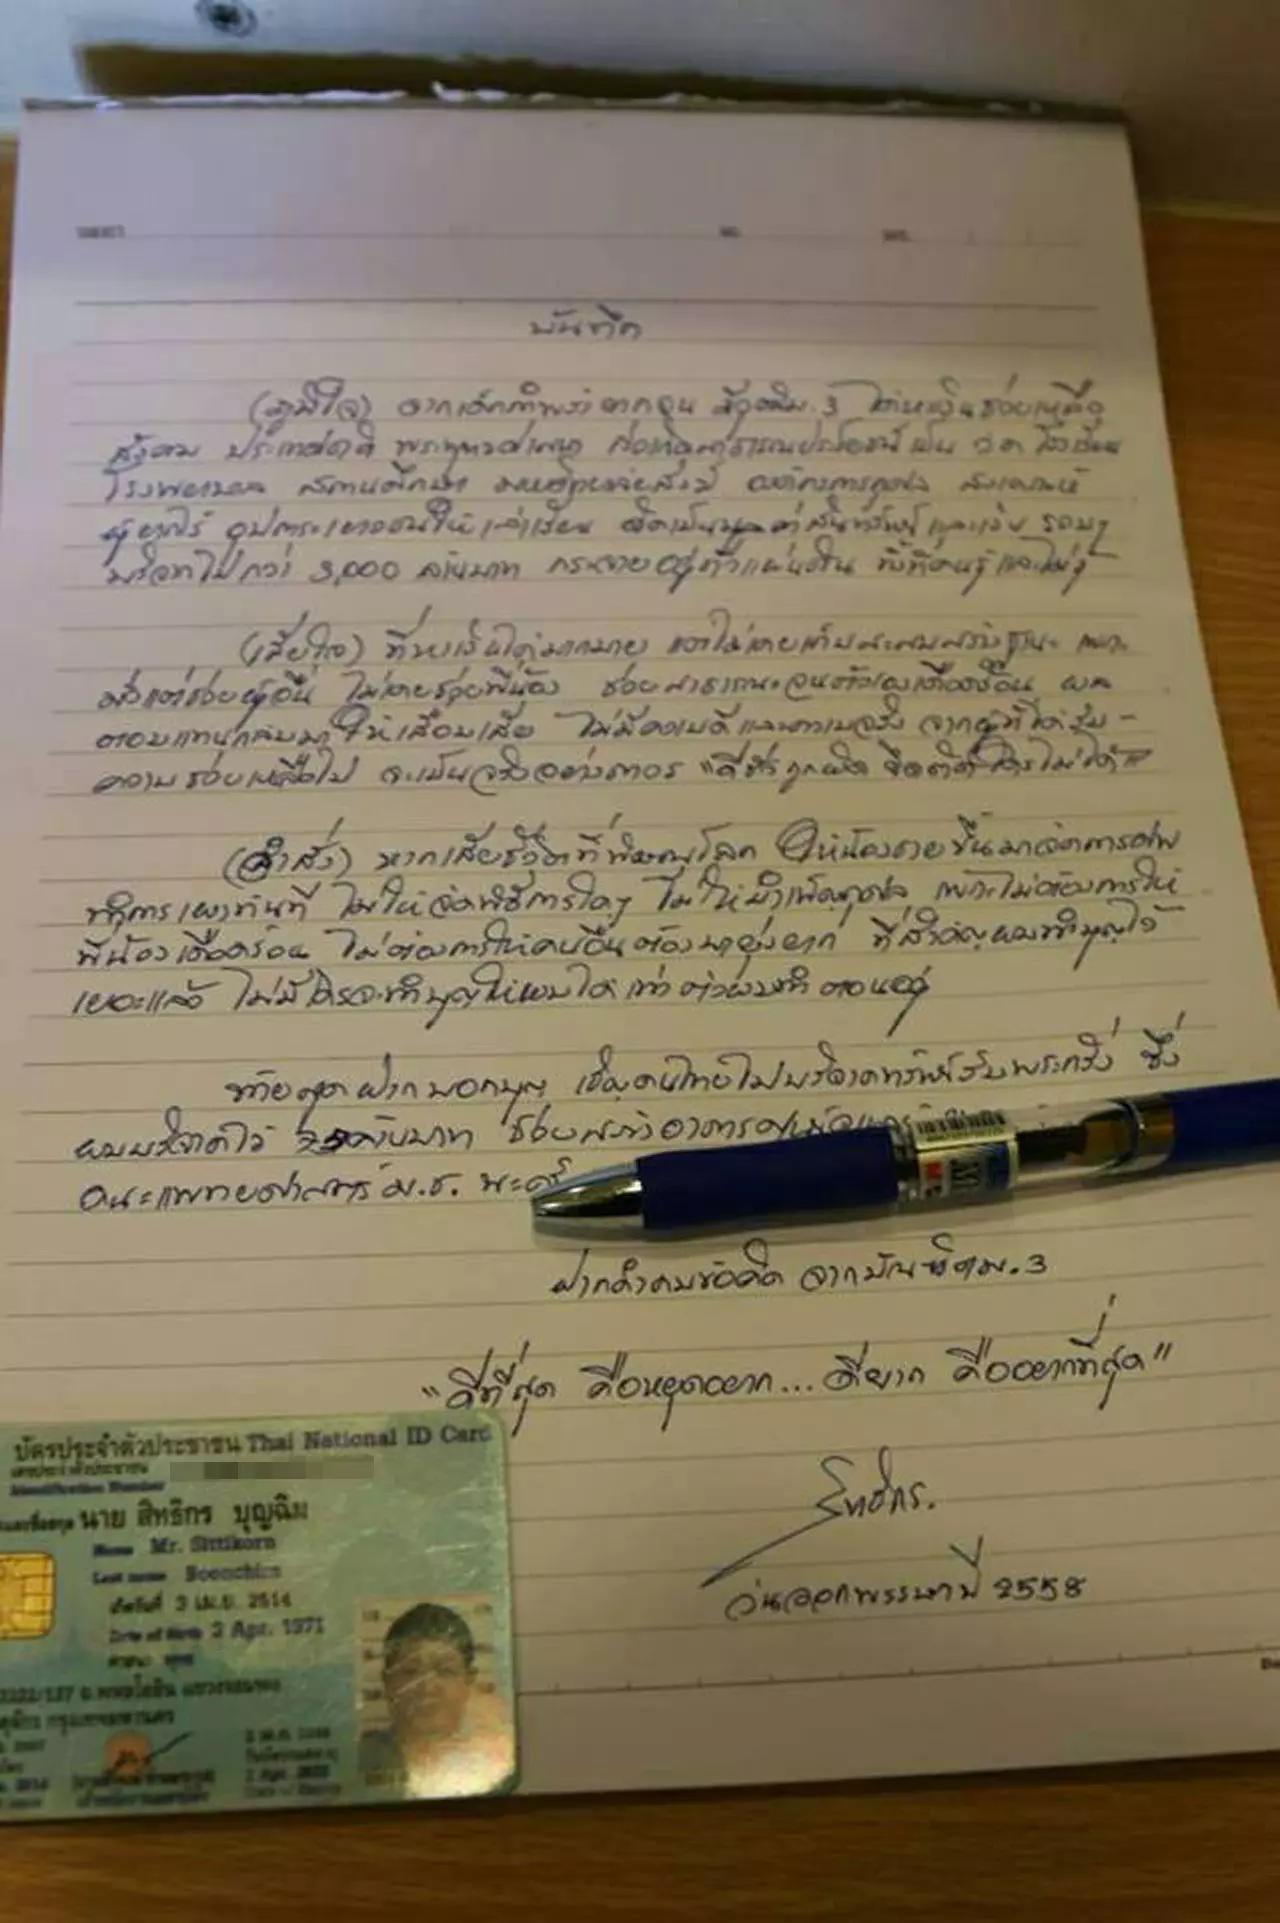 บันทึก
(ภูมิใจ) จากเด็กกำพร้า ยากจน ม.3 ได้หาเงินช่วยเหลือ
สังคม ประเทศชาติ พระพุทธศาสนา ก่อเกิดสาธารณประโยชน์เป็น วัด โรงเรียน
โรงพยาบาล สถานศึกษา มหาวิทยาลัยสงฆ์ องค์กรการกุศล สงเคราะห์
ผู้ยากไร้ อุปการะเยาวชนให้เล่าเรียน คิดเป็นมูลค่าสินทรัพย์และเงิน รวมๆ
บริจาคไปกว่า 3,000 ล้านบาท กระจายอยู่ทั่วแผ่นดิน ทั้งที่คนรู้และไม่รู้
(เสียใจ) ที่หาเงินได้มากมาย แต่ไม่เคยเก็บสะสมสร้างฐานะ เพราะ
มัวแต่ช่วยผู้อื่น ไม่เคยช่วยพี่น้อง ช่วยสาธารณะจนตัวเองเดือดร้อน ผล
ตอบแทนกลับมาให้เสื่อมเสีย ไม่มีความดีและความจริง จากผู้ที่ได้รับ-
ความช่วยเหลือไป จะเป็นจริงอย่างถาวร "ดีชั่วถูกผิด ยึดติดใครไม่ได้"
(คำสั่ง) หากเสียชีวิตที่พิษณุโลก ให้น้องชายขึ้นมาจัดการศพ
ทำการเผาทันที ไม่ให้จัดพิธีการใดๆ ไม่ให้บำเพ็ญกุศล เพราะไม่ต้องการให้
พี่น้องเดือดร้อน ไม่ต้องการให้คนอื่นต้องมายุ่งยาก ที่สำคัญผมทำบุญไว้
เยอะแล้ว ไม่มีใครจะทำบุญให้ผมได้เท่าตัวผมทำตอนอยู่
ท้ายสุดฝากบอกบุญ เชิญคนไทยไปบริจาคทรัพย์รับพระกริ่ง ซึ่ง
ผมบริจาคไว้ ล้านบาท ช่วยสร้างอาคารศูนย์
คณะแพทยศาสตร์ ม.ช. นะครับ
ฝากคำคมข้อคิด จากบัณฑิตม.3
"ดีที่สุด คือหยุดอยาก... ดียาก คืออยากที่สุด"
สิทธิกร.
วันออกพรรษาปี 2558
บัตรประจำตัวประชาชน Thai National ID Card
เลขประจำตัวประชาชน
Identification Number
ชื่อตัวและชื่อสกุล นาย สิทธิกร บุญฉิม
Name Mr. Sittikorn
Last name Boonchim
เกิดวันที่ 3 เม.ย. 2514
Date of Birth 3 Apr. 1971
ศาสนา พุทธ